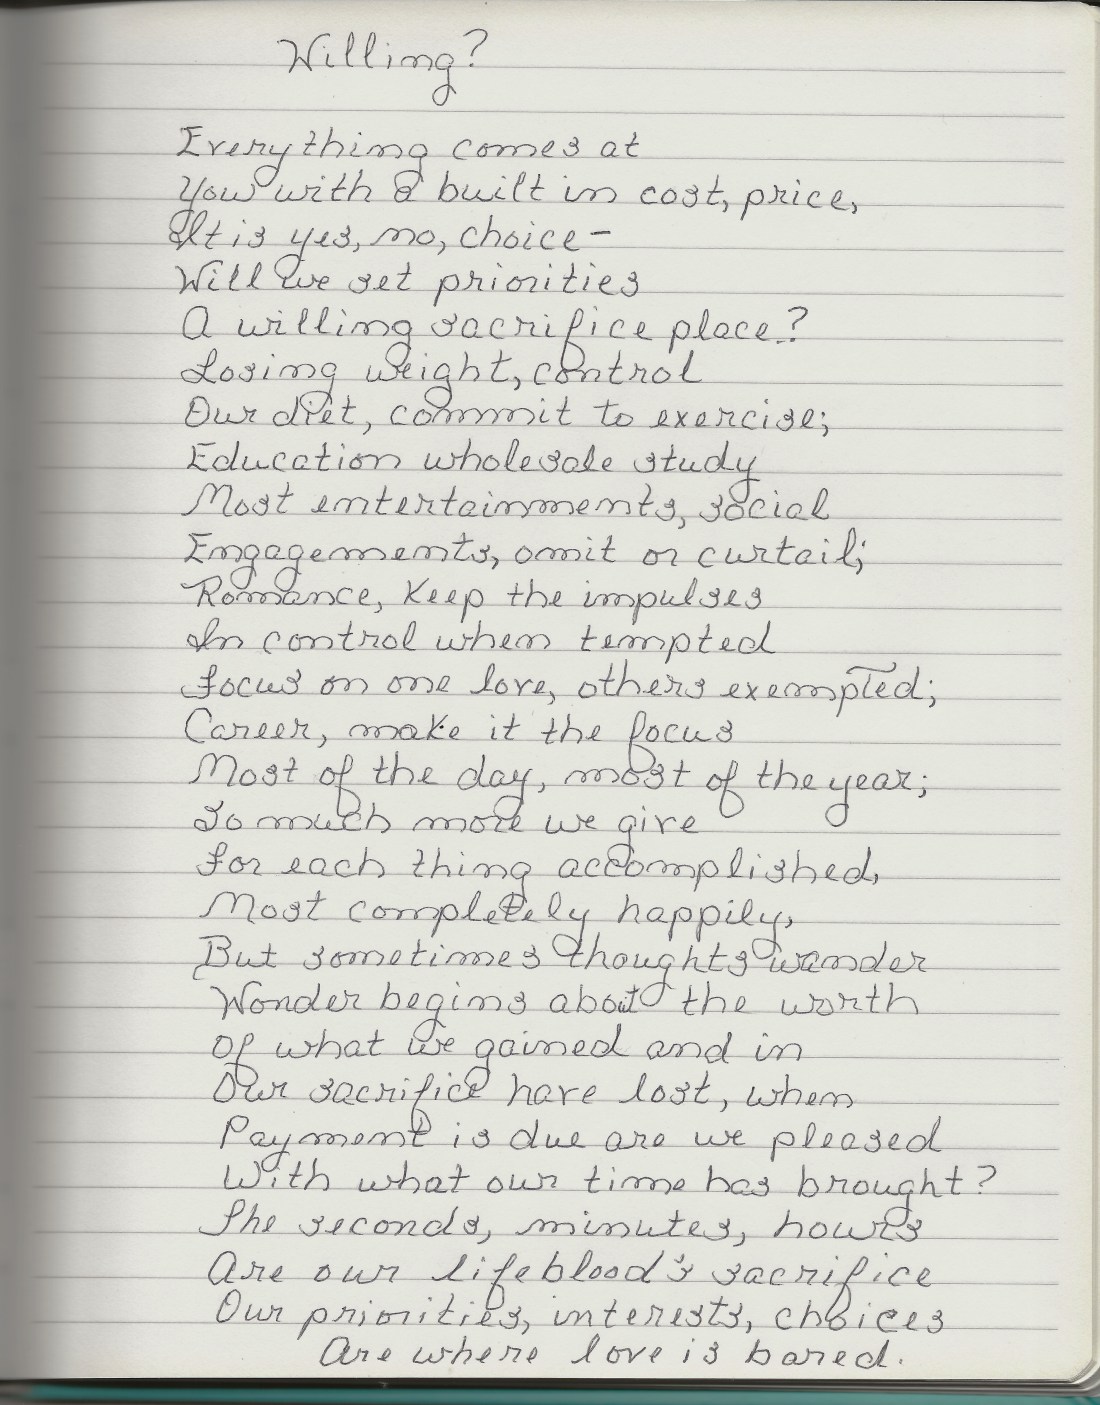 Willing?
Everything comes at
You with a built in cost, price,
It is yes, no, choice-
Will we set priorities
A willing sacrifice place?
Losing weight, control
Our diet, commit to exercise;
Education wholesale study
Most entertainments, social
Engagements, omit or curtail;
Romance, Keep the impulses
In control when tempted
Focus on one love, others exempted;
Career, make it the focus
Most of the day, most of the year;
So much more we give
For each thing accomplished,
Most completely happily,
But sometimes thoughts wander
Wonder begins about the worth
Of what we gained and in
Our sacrifice have lost, when
Payment is due are we pleased
With what our time has brought?
The seconds, minutes, hours
Are our lifeblood's sacrifice
Our priorities, interests, choices
Are where love is bared.